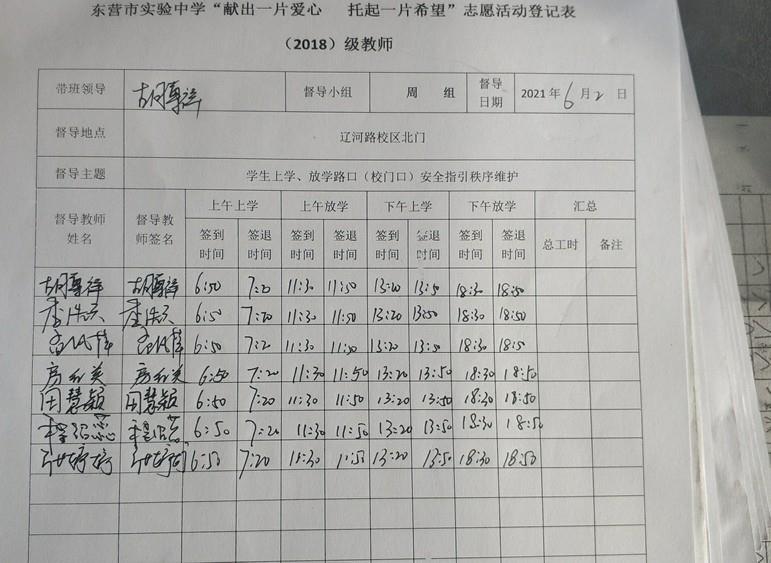 东营市实验中学“献出一片爱心 托起一片希望”志愿活动登记表
（2018）级教师
带班领导 胡尊祥 督导小组 周 组 督导日期 2021年6月2日
督导地点 辽河路校区北门
督导主题 学生上学、放学路口（校门口）安全指引秩序维护
督导教师姓名 督导教师签名 上午上学 上午放学 下午上学 下午放学 汇总
签到时间 签退时间 签到时间 签退时间 签到时间 签退时间 签到时间 签退时间 总工时 备注
胡尊祥 胡尊祥 6:50 7:20 11:30 11:50 13:20 13:50 18:30 18:50
6:50 7:20 11:30 11:50 13:20 13:50 18:30 18:50
6:50 7:2 11:30 11:50 13:20 13:50 18:30 18:50
房 美 房 美 6:50 7:20 11:30 11:50 13:20 13:50 18:30 18:50
田慧颖 田慧颖 6:50 7:20 11:30 11:50 13:20 13:50 18:30 18:50
程 蕊 程 6:50 7:20 11:30 11:50 13:20 13:50 18:30 18:50
婷婷 婷 6:50 7:20 11:30 11:50 13:20 13:50 18:30 18:50